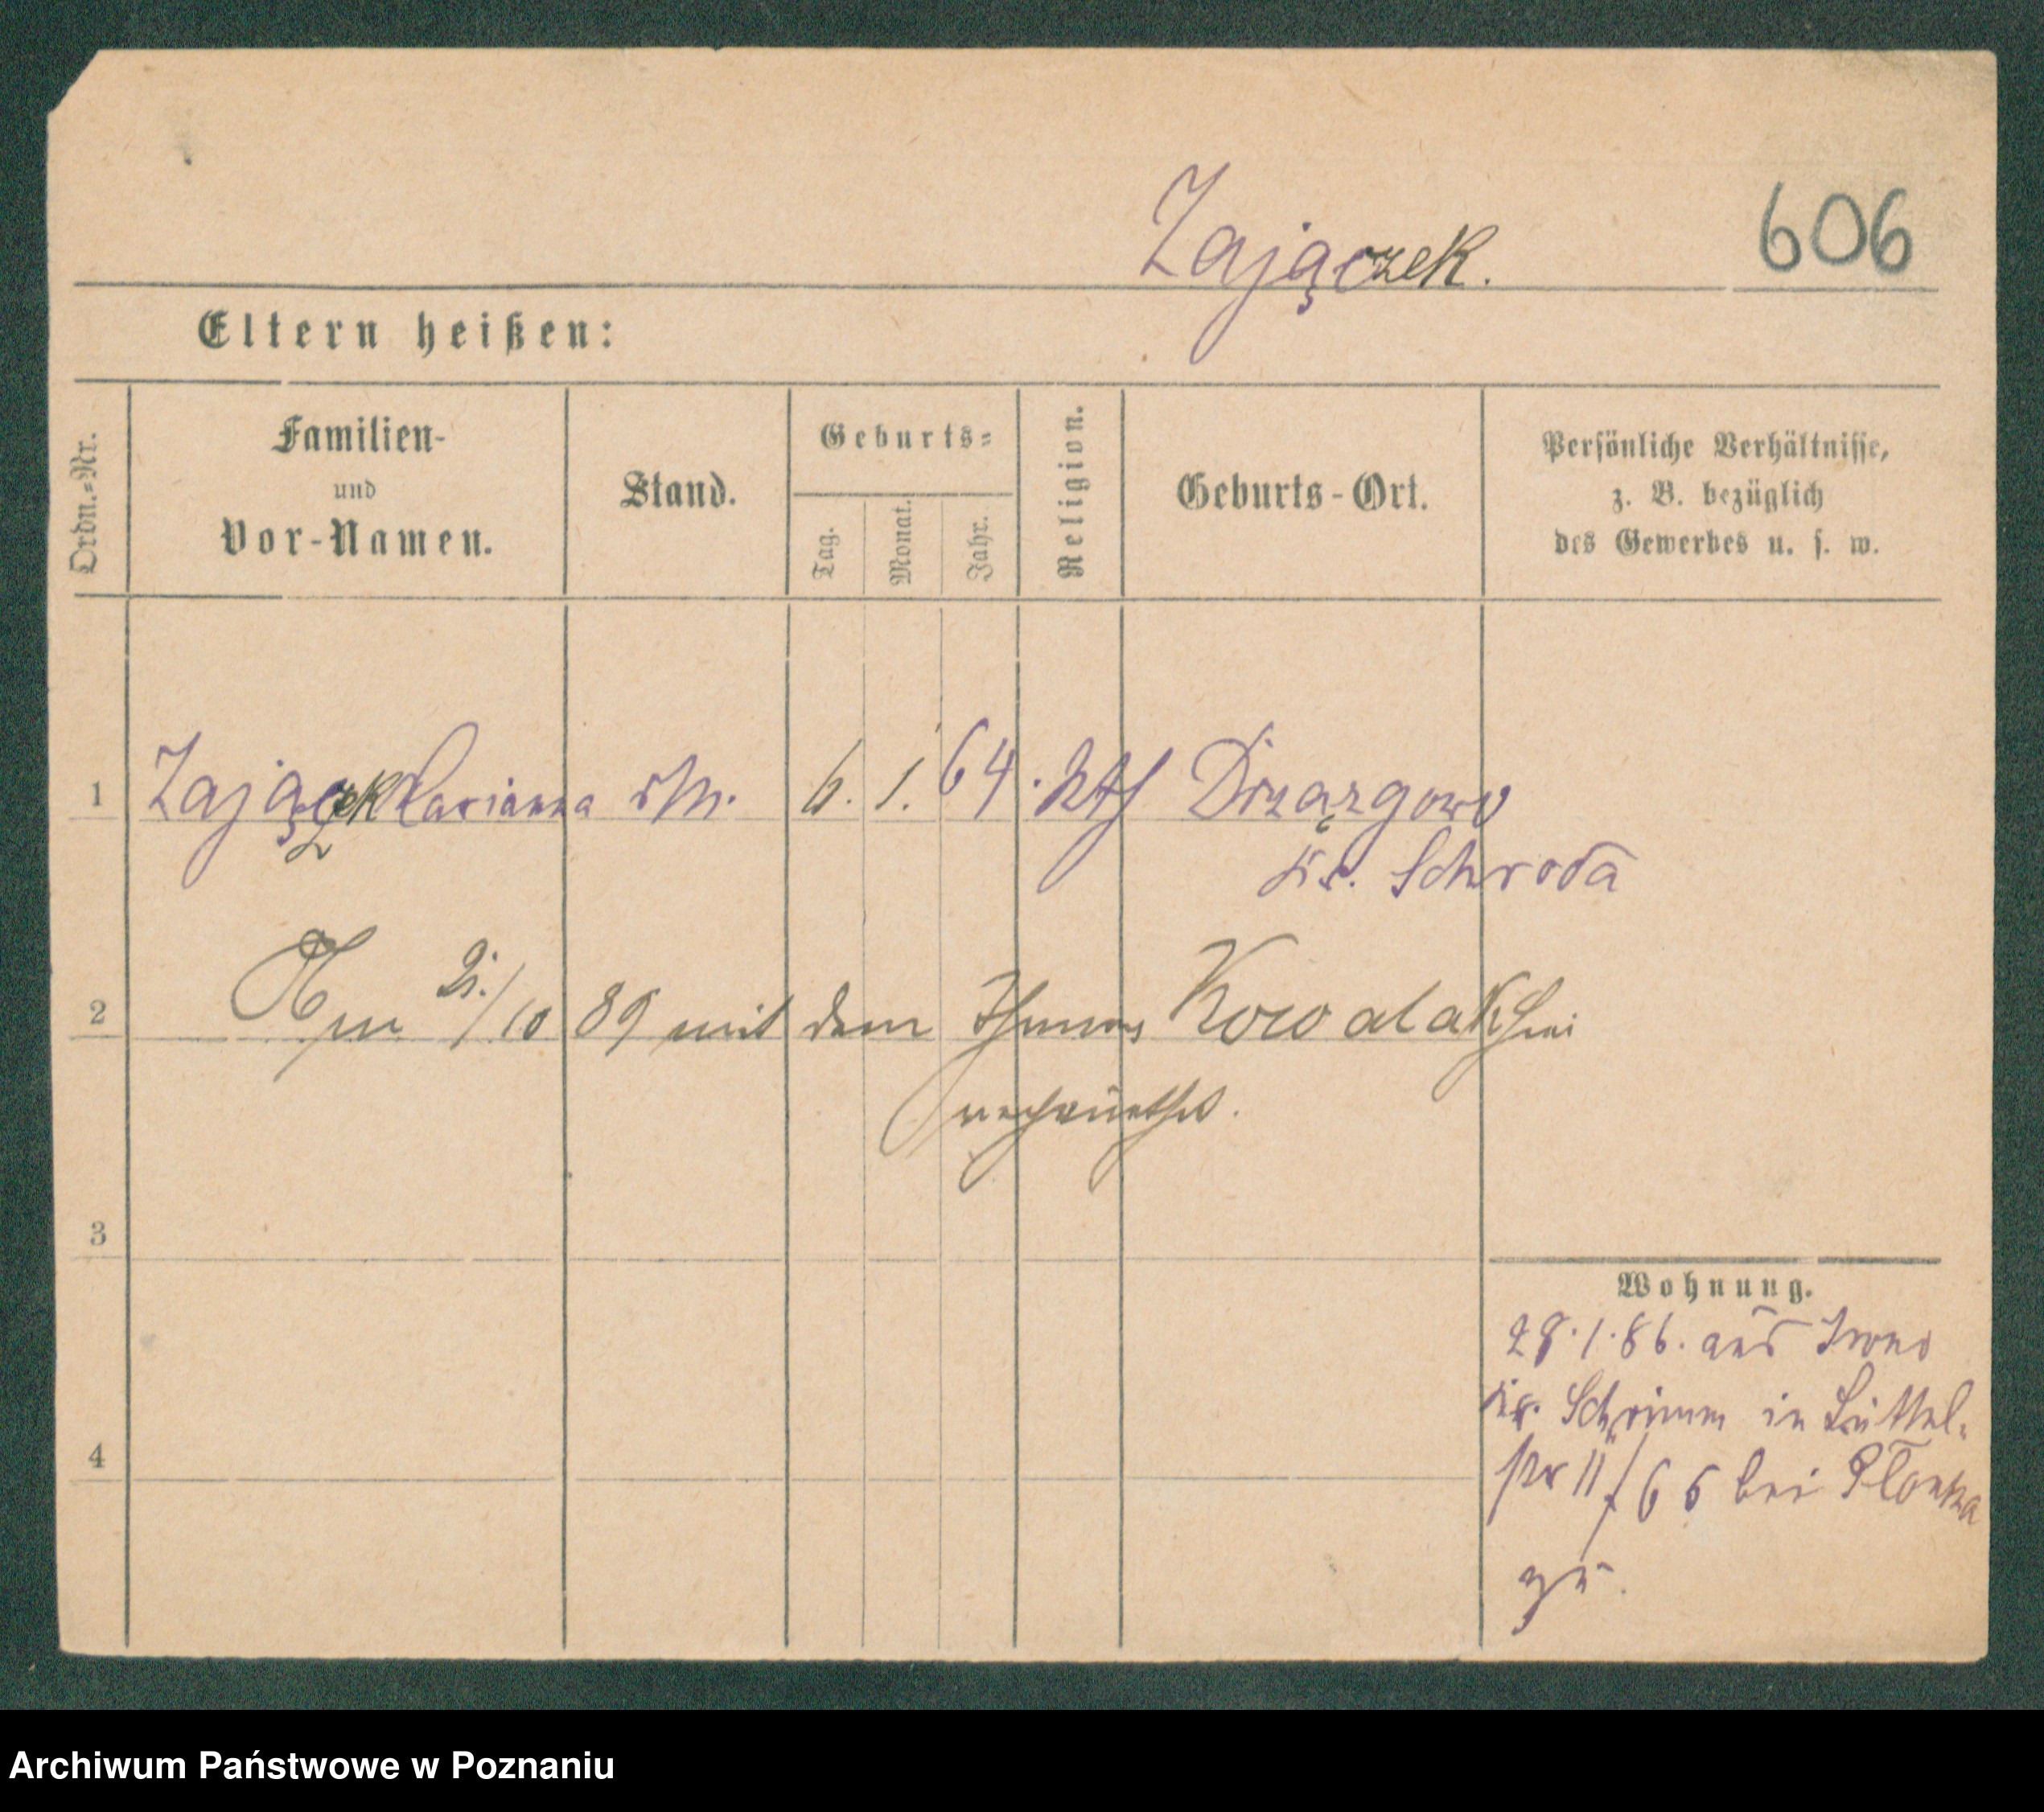 Zajączek. 606
Eltern heißen:
Ordn.-Nr.
Familien-
und
Vor-Namen.
Stand.
Geburts-
Tag.
Monat.
Jahr.
Religion.
Geburts-Ort.
Persönliche Verhältnisse,
z. B. bezüglich
des Gewerbes u. s. w.
1 Zajączek Marianna 6. 1. 64. kth Drzązgowo
Kr. Schroda
2 Am /10 89 mit dem Kowalakski
verheirathet.
3
Wohnung.
28.1.86. aus
Kr. Schrimm in Büttel-
str 11 / 6 6 bei Płonka
zu.
4
Archiwum Państwowe w Poznaniu